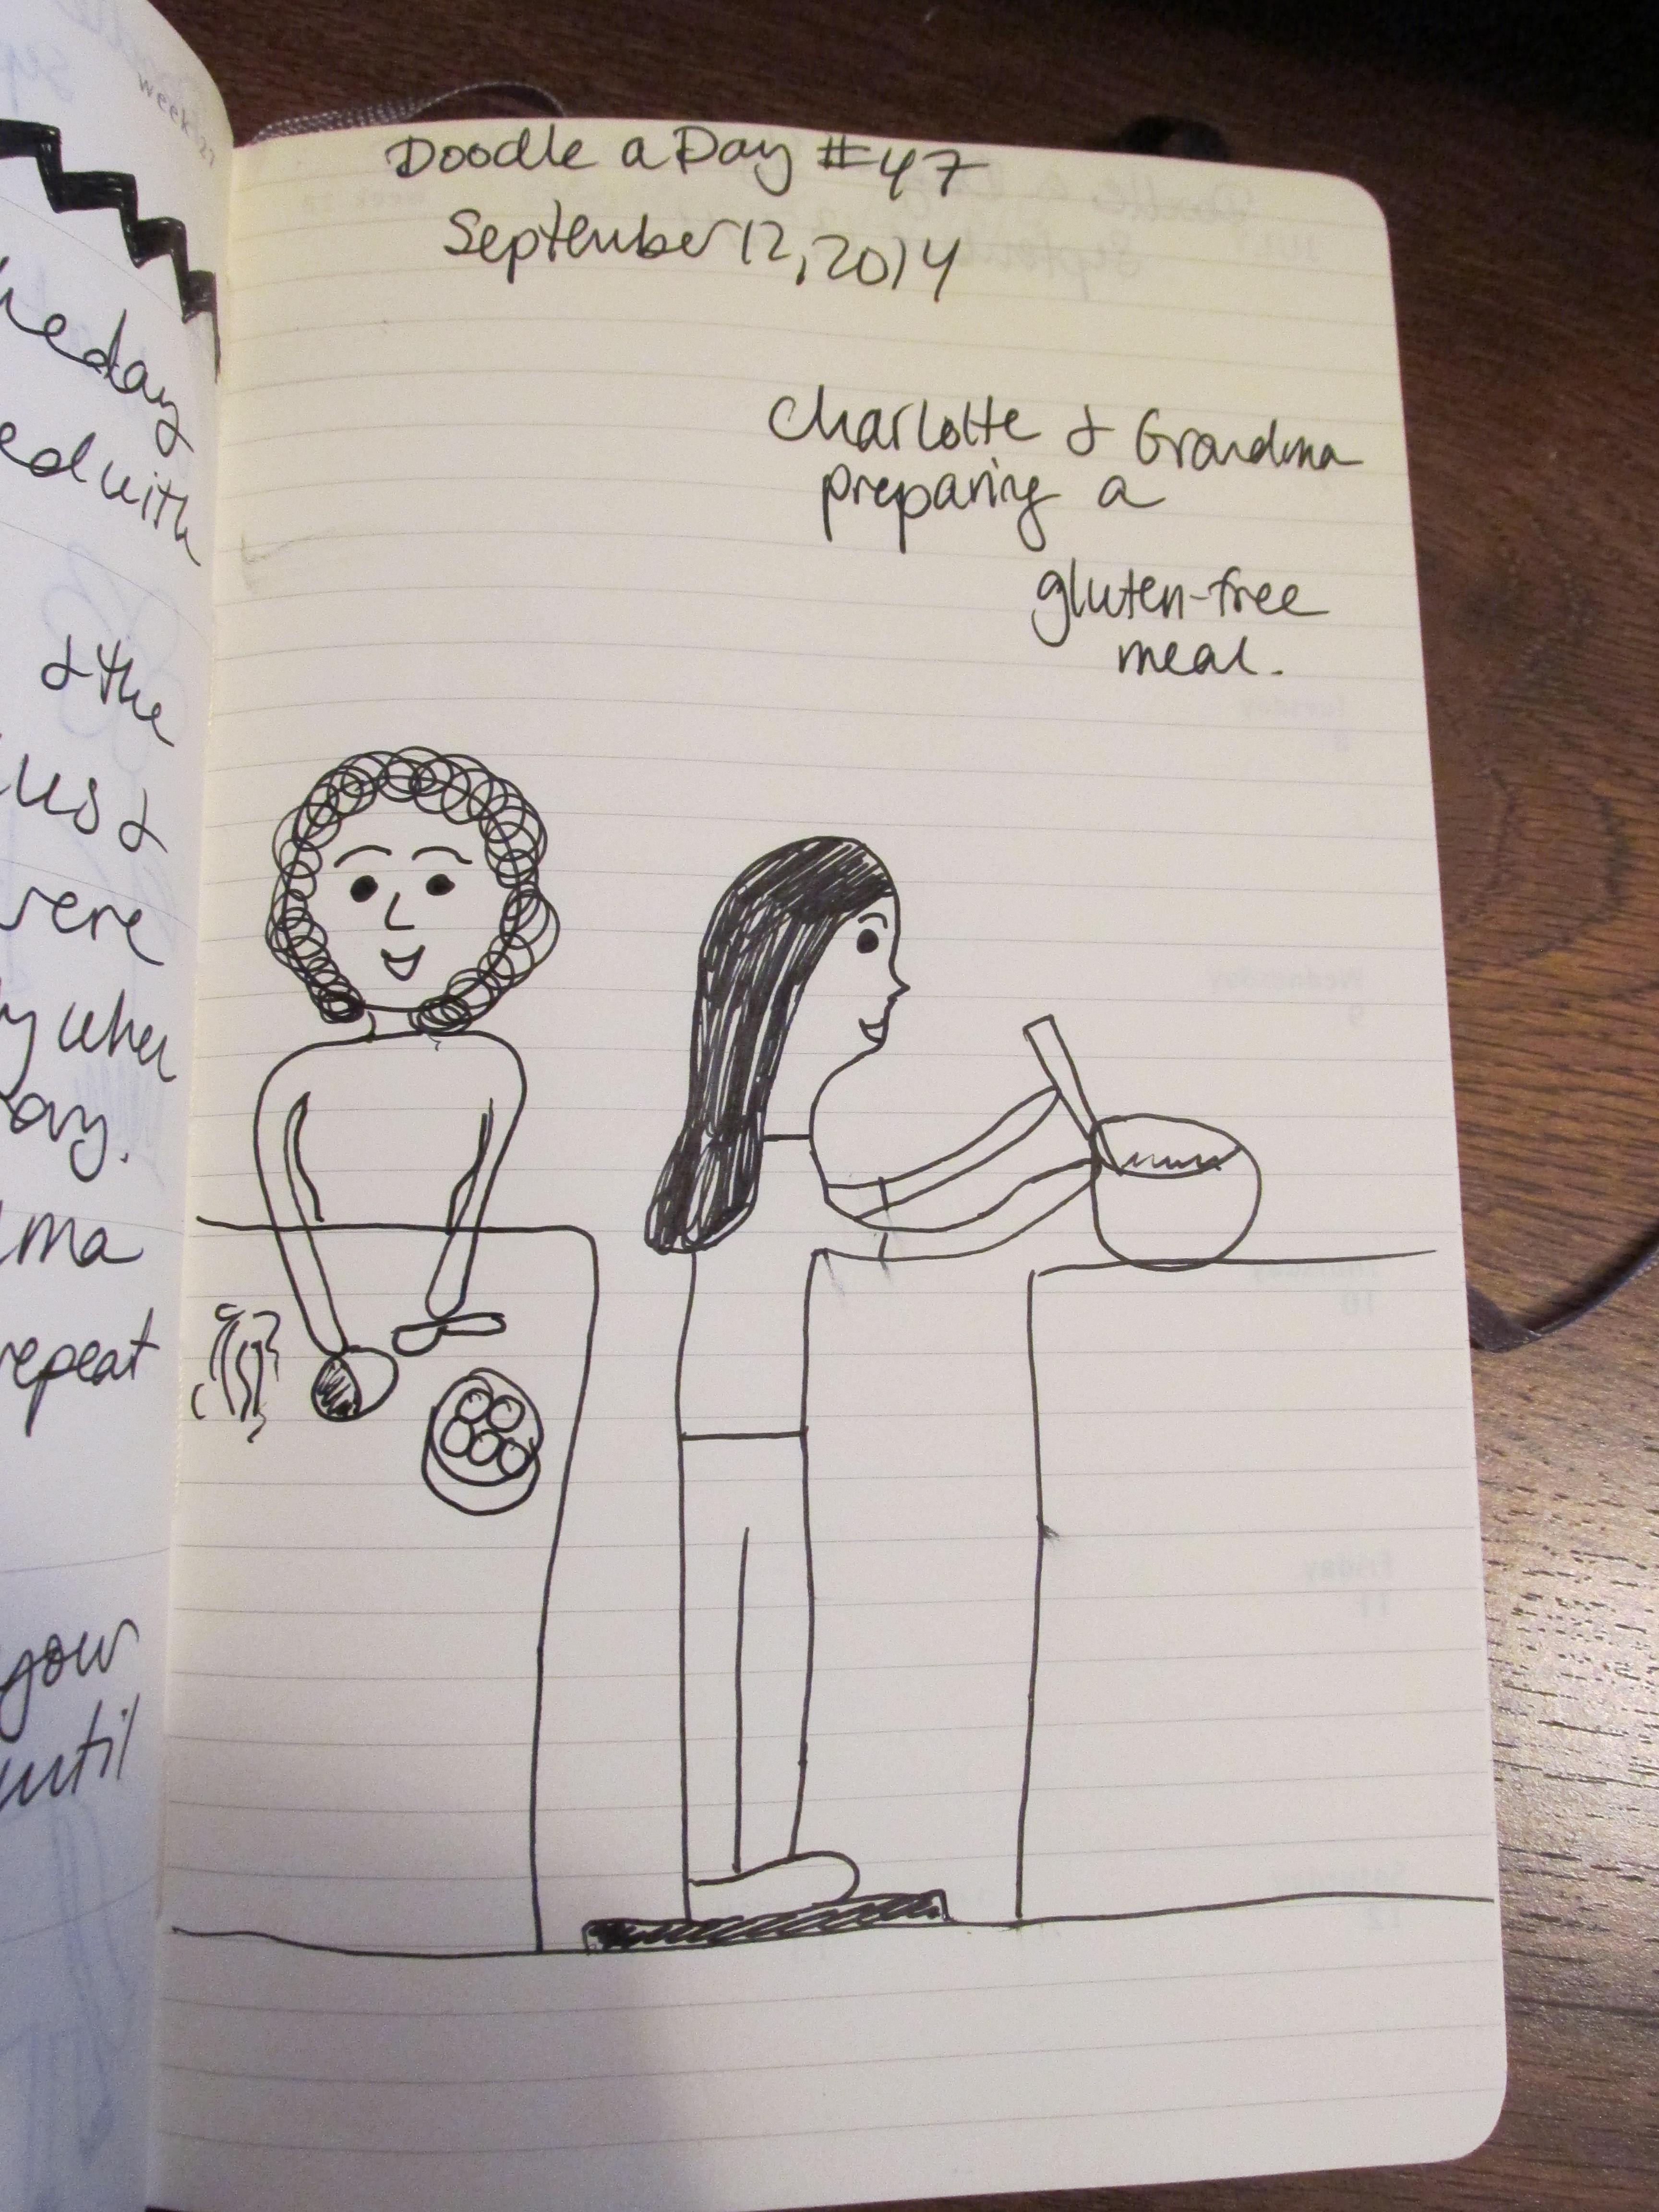 week 27
heday
ed with
& the
us &
were
y when
ay.
ma
repeat
your
until
Doodle a Day #47
September 12, 2014
Charlotte & Grandma
preparing a
gluten-free
meal.